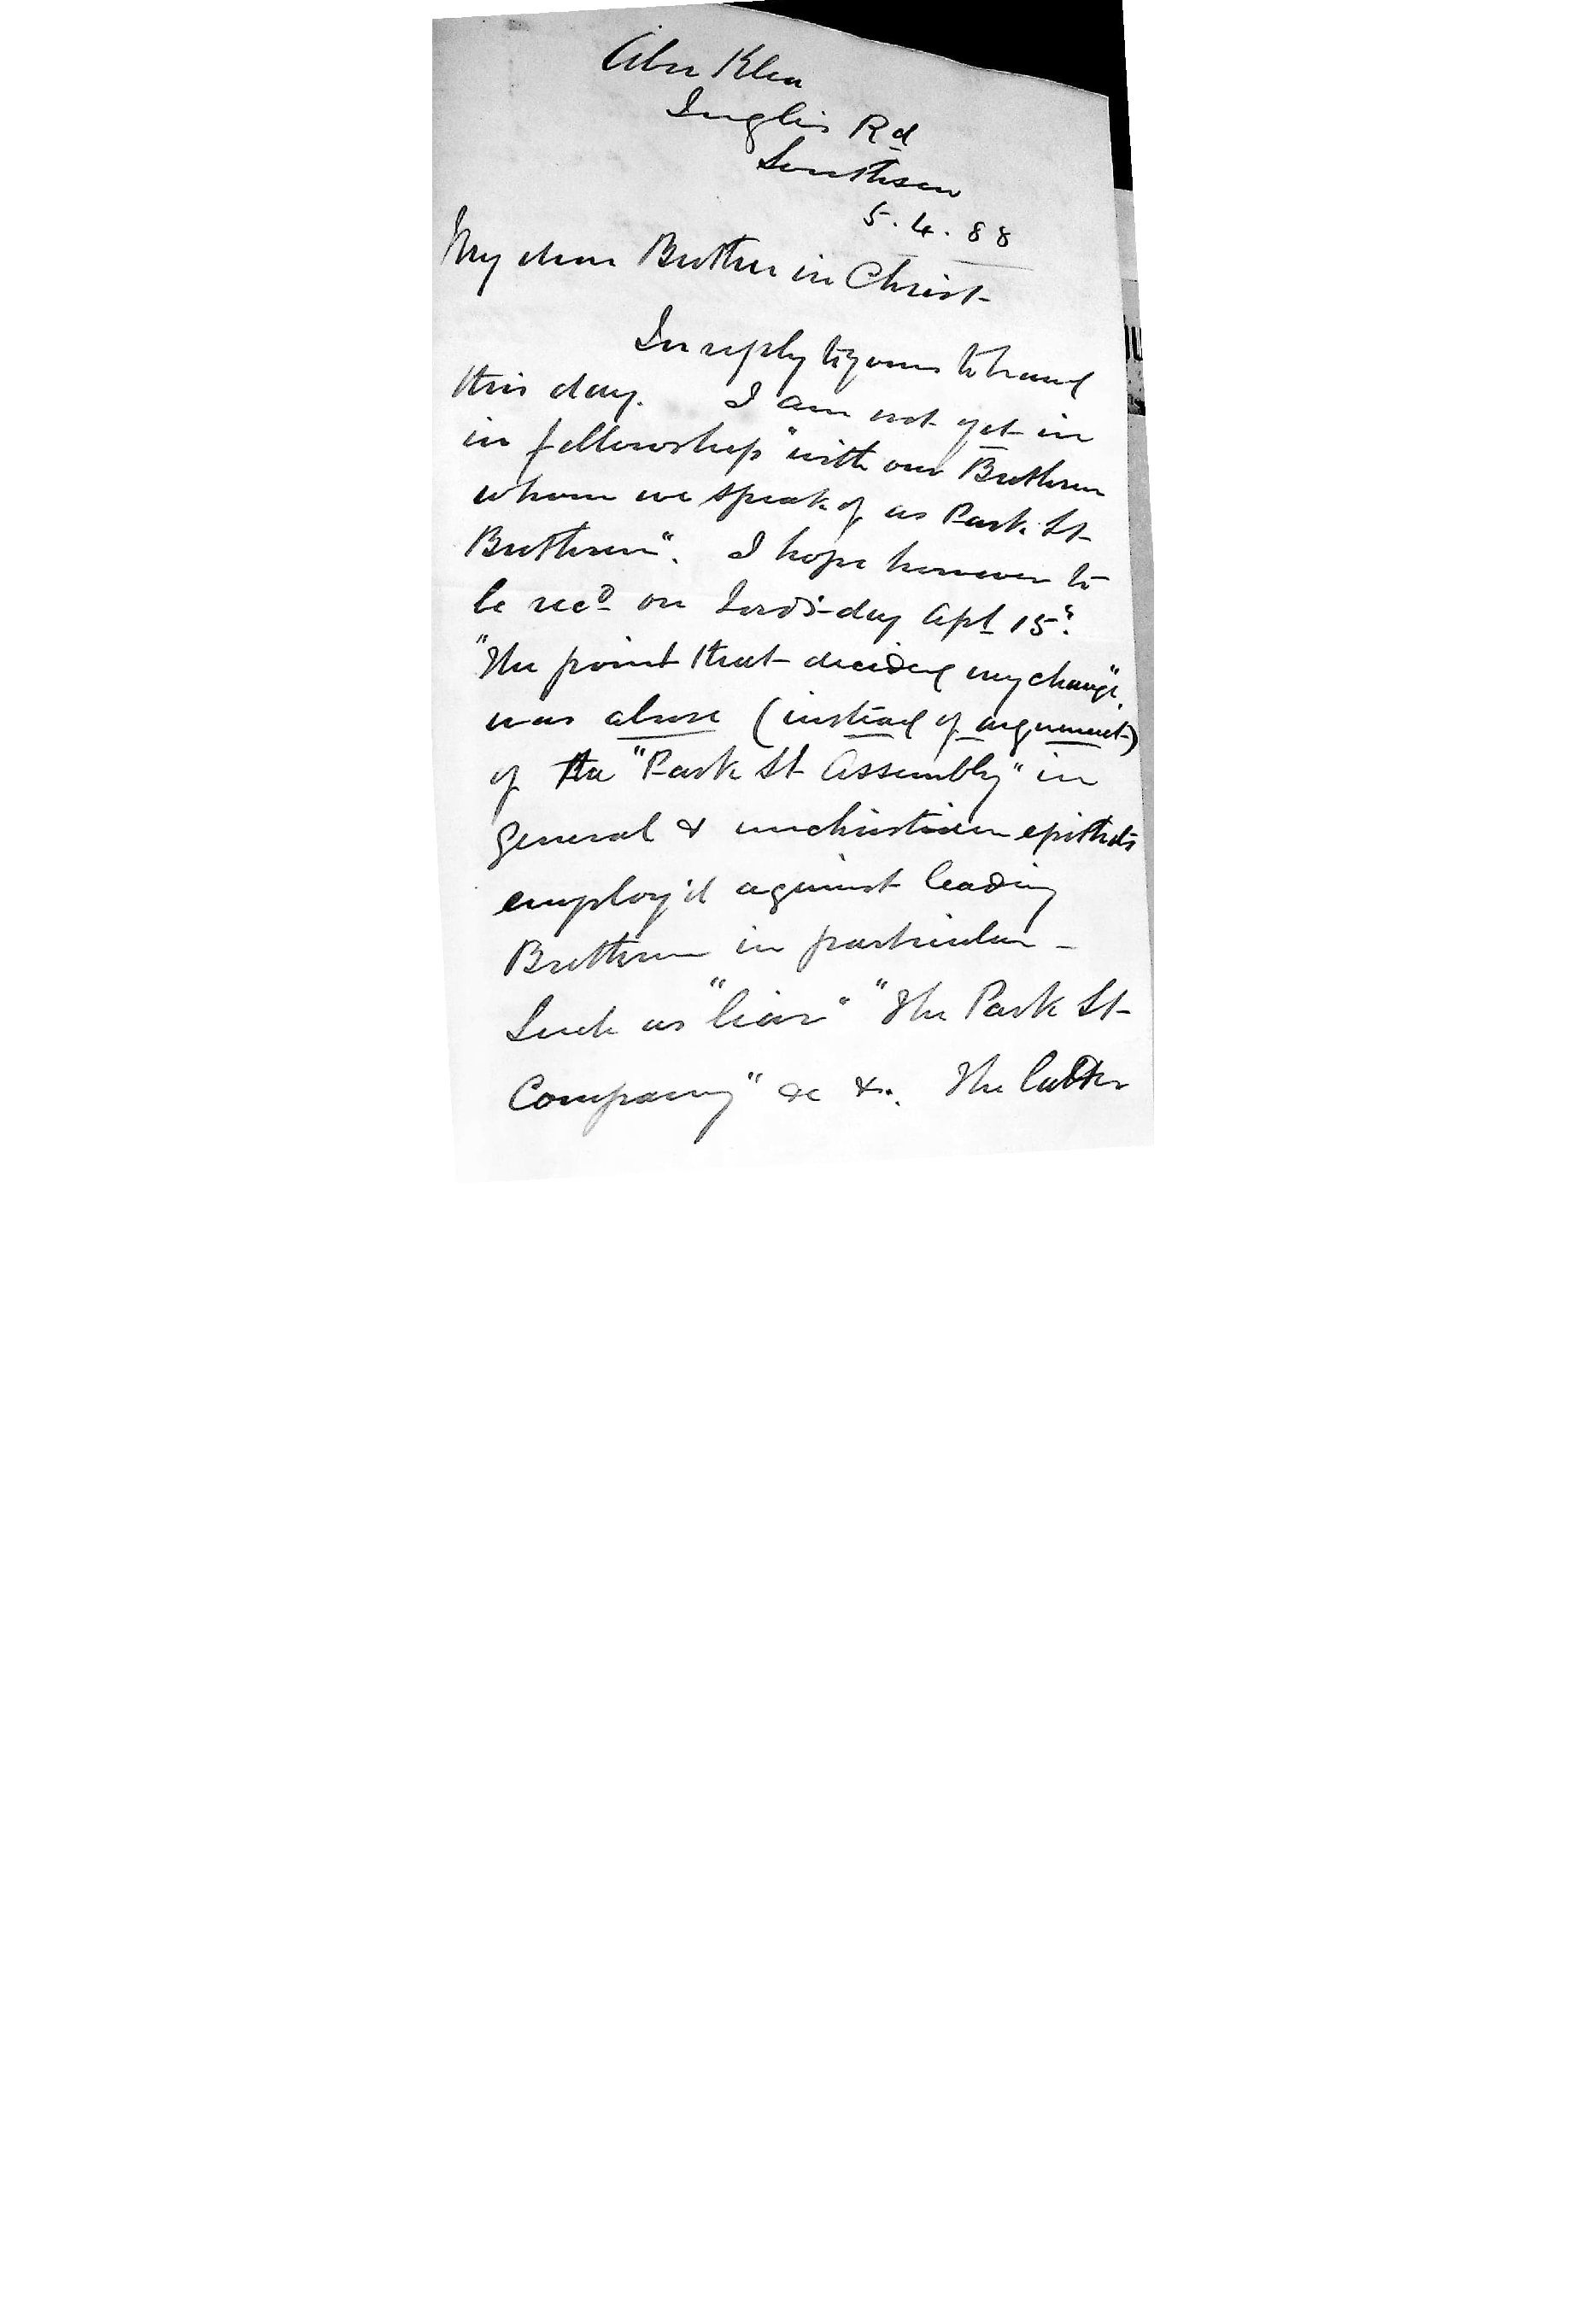 Abu Klea
Inglis Rd
Southsea
5.4.88
My dear Brother in Christ
In reply to yours to hand
this day. I am not yet in
in fellowship" with our Brethren
whom we speak of as Park St
Brethren". I hope however to
be recd on Lord's-day Apl 15.
"The point that decided my change"
was abuse (instead of argument)
of the "Park St Assembly" in
general & unchristian epithets
employ'd against leading
Brethren in particular -
Such as "liar" "The Park St
Company" &c &c. The latter